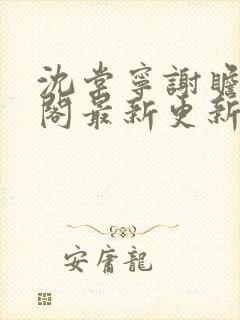 沈棠寧謝瞻
閣最新更新
安庸龍